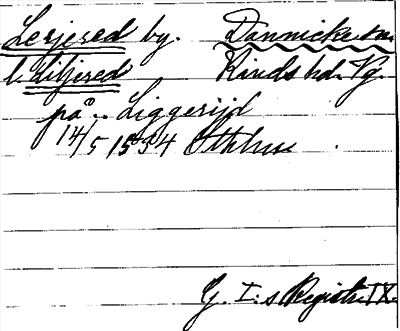 Lexjered by. Dannicke sn.
l. Liljered Kinds hd. Vg.
på .. Liggerijd
14/5 1534 Sthlm .
G. I:s Registr. IX.